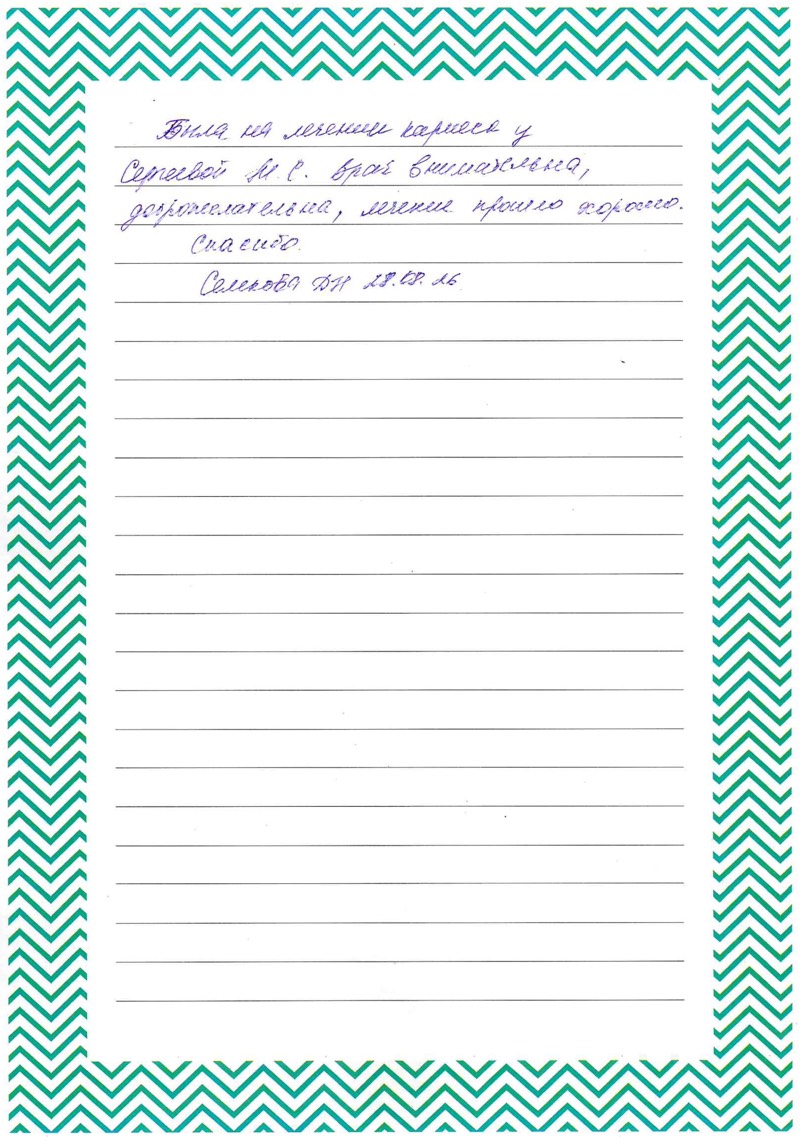 Была на лечении кариеса у
Сергеевой М.С. Врач внимательна,
доброжелательна, лечение прошло хорошо.
Спасибо.
ДН 28.08.26